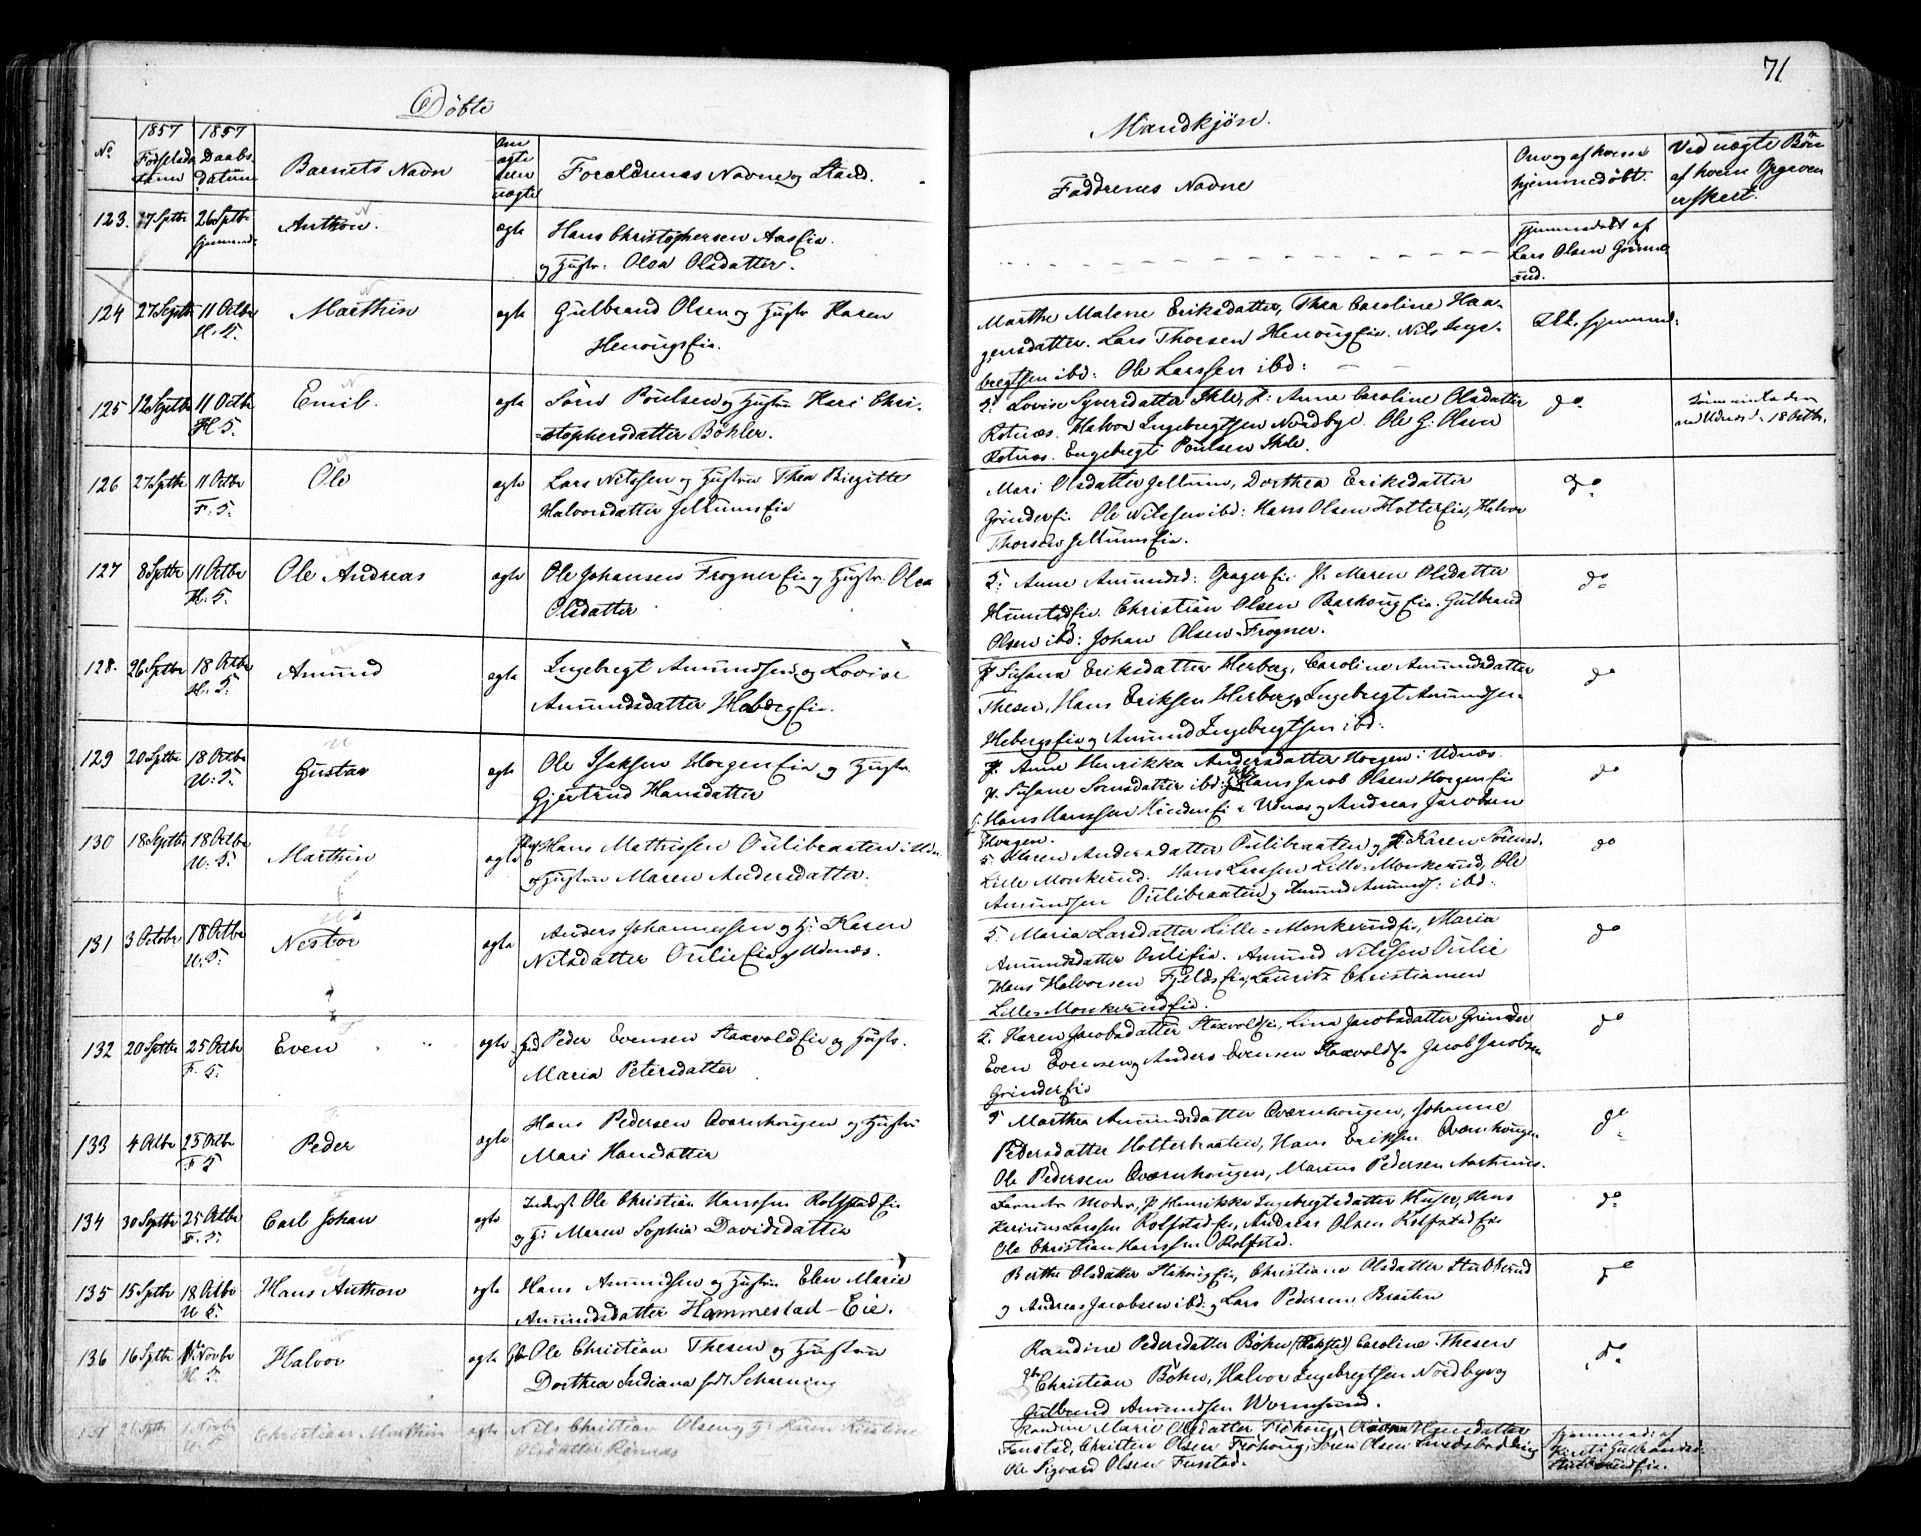 71
Døbte
Mandkjøn.
No
1857
Fødselsdatum
1857
Daabsdatum
Barnets Navn
Om ægte eller uægte
Forældrenes Navne og Stand.
Faddrenes Navne
Om og af hvem hjemmedøbt.
Ved uægte Børn af hvem Opgaven er skeet.
123. 17 Septbr 26 Septbr Anthon. ægte Hans Christophersen Aas Eie.
hjemmed: og Hustr: Olea Olsdatter.
Hjemmedøbt af
Lars Olsen
124 27 Septbr 11 Octbr Marthin ægte Gulbrand Olsen og Hustr Karen
H. K. Henougs Eie.
Marthe Malene Eriksdatter, Thea Caroline Haa-
gensdatter. Lars Thorsen Henoug Eie. Nils Inge-
bregtsen ibd: Ole Larssen ibd:
Ikke hjemmed:
125 12 Septbr 11 Octbr Emil. ægte Søren Poulsen og Hustru Kari Chri-
H. K. =stophersdatter Bøhler.
Lovise Syversdatter Ihle, P: Anne Caroline Olsdatter
Rotnæs. Halvor Ingebregtsen Nordbye Ole G: Olsen
Rotnæs. Engebregt Poulsen Ihle.
do
18 Octbr.
126 27 Septbr 11 Octbr Ole ægte Lars Nilssen og Hustru Thea Birgitte
F. K. Halvorsdatter Jellums Eie
Mari Olsdatter Jellum, Dorthea Eriksdatter
Grinder Eie Ole Nilssen ibd: Hans Olsen Holter Eie, Halvor
Thorsen Jellums Eie.
do
127 8 Septbr 11 Octbr Ole Andreas ægte Ole Johansen Frogner Eie og Hustr: Olea
H. K. Olsdatter
K: Anne Amundsd: Grager Eie P: Maren Olsdatter
Hunstad Eie. Christian Olsen Barhoug Eie. Gulbrand
Olsen ibd: Johan Olsen Frogner.
do
128. 26 Septbr 18 Octbr Amund ægte Ingebregt Amundsen og Lovise
H. K. Amundsdatter Heberg Eie.
P Susana Eriksdatter Herberg, Caroline Amundsdatter
Thesen, Hans Eriksen Herberg, Ingebregt Amundsen
Hebergs Eie og Amund Ingebregtsen ibd:
do
129 20 Septbr 18 Octbr Gustav ægte Ole Isaksen Horgen Eie og Hustr
U: K. Gjertrud Hansdatter
P. Anne Henrikka Andersdatter Horgen i Udnæs.
P. Susane Sørensdatter ibd: Hans Jacob Olsen Horgen Eie
Hans Hanssen Eie i Udnæs og Andreas Jacobsen
Horgen.
do
130 18 Septbr 18 Octbr Marthin ægte Hans Mathissen Oulibraaten i Udn.
U: K. og Hustru Maren Andersdatter.
K. Maren Andersdatter Oulibraaten og P: Karen Sørensd.
Lille Monkerud. Hans Larssen Lille-Monkerud, Ole
Amundsen Oulibraaten og Amund Amunds: ibd:
do
131 3 Octobr 18 Octbr Nestor ægte Anders Johannessen og H: Karen
U: K. Nilsdatter Oulie Eie af Udnæs.
K: Maria Larsdatter Lille=Monkerud Eie, Maria
Amundsdatter Ouli Eie. Amund Nilssen Oulie
Hans Halvorsen Fjelds Eie, Lauritz Christiansen
Lille Monkerud Eie.
do
132 20 Septbr 25 Octbr Even ægte Peder Evensen Staxvold Eie og Hustr.
F. K. Maria Petersdatter
K. Karen Jacobsdatter Staxvold Eie, Lina Jacobsdatter Grinder
Even Evensen og Anders Evensen Staxvold Eie Jacob Jacobsen
Grinder Eie
do
133 4 Octbr 25 Octbr Peder ægte Hans Pedersen Qværnhougen og Hustru
F K Mari Hansdatter
Marthea Amundsdatter Qværnhougen, Johanne
Pedersdatter Holterbraaten, Hans Eriksen Qværnhougen
Ole Pedersen Qværnhougen, Marius Pedersen
do
134 30 Septbr 25 Octbr Carl Johan ægte Inderst Ole Christian Hanssen Rolfstad Eie
F. K. og H: Maren Sophia Davidsdatter
Barnets Moder, P Henrikka Ingebregtsdatter Huser, Hans
Larssen Rolfstad Eie, Andreas Olsen Rolfstad Eie
Ole Christian Hanssen Rolfstad.
do
135 15 Septbr 18 Octbr Hans Anthon ægte Hans Amundsen og Hustru Elen Marie
U K. Amundsdatter Hammestad-Eie.
Berthe Olsdatter Eie, Christiane Olsdatter Stubberud
og Andreas Jacobsen ibd: og Lars Pedersen Braaten
do
136 16 Septbr 1 Novbr Halvor ægte Gbr Ole Christian Thesen og Hustru
H. K. Dorthea Indiana født Scharning
Randine Pedersdatter Bøhn, Caroline Thesen
Christian Bøhn, Halvor Ingebregtsen Nordbye og
Gulbrand Amundsen Wormsund.
do
137 26 Septbr 1 Novbr Christian Marthin ægte Nils Christian Olsen og H: Karen Kirstine
U. K Olsdatter Rømnæs
Randine Marie Olsdatter Frøhoug, Hansdatter
Funstad, Christen Olsen Frøhoug, Søren Olsen
Ole Sigvard Olsen Funstad.
hjemmed: af
Stubberud Eie.